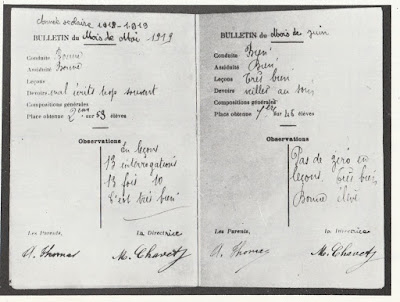 Année scolaire 1918-1919
BULLETIN du Mois de Mai 1919
Conduite Bonne
Assiduité Bonne
Leçons
Devoirs mal écrits trop souvent
Compositions générales
Place obtenue 2ème sur 53 élèves
Observations
En leçons
13 interrogations
13 fois 10
C'est très bien
Les Parents,
La Directrice
A. Thomas
M. Chavet
BULLETIN du Mois de juin
Conduite Bien
Assiduité Bien
Leçons Très bien
Devoirs veiller au soin
Compositions générales
Place obtenue sur 46 élèves
Observations
Pas de zéro en
leçons très bien
Bonne élève
Les Parents,
La Directrice
A. Thomas
M. Chavet